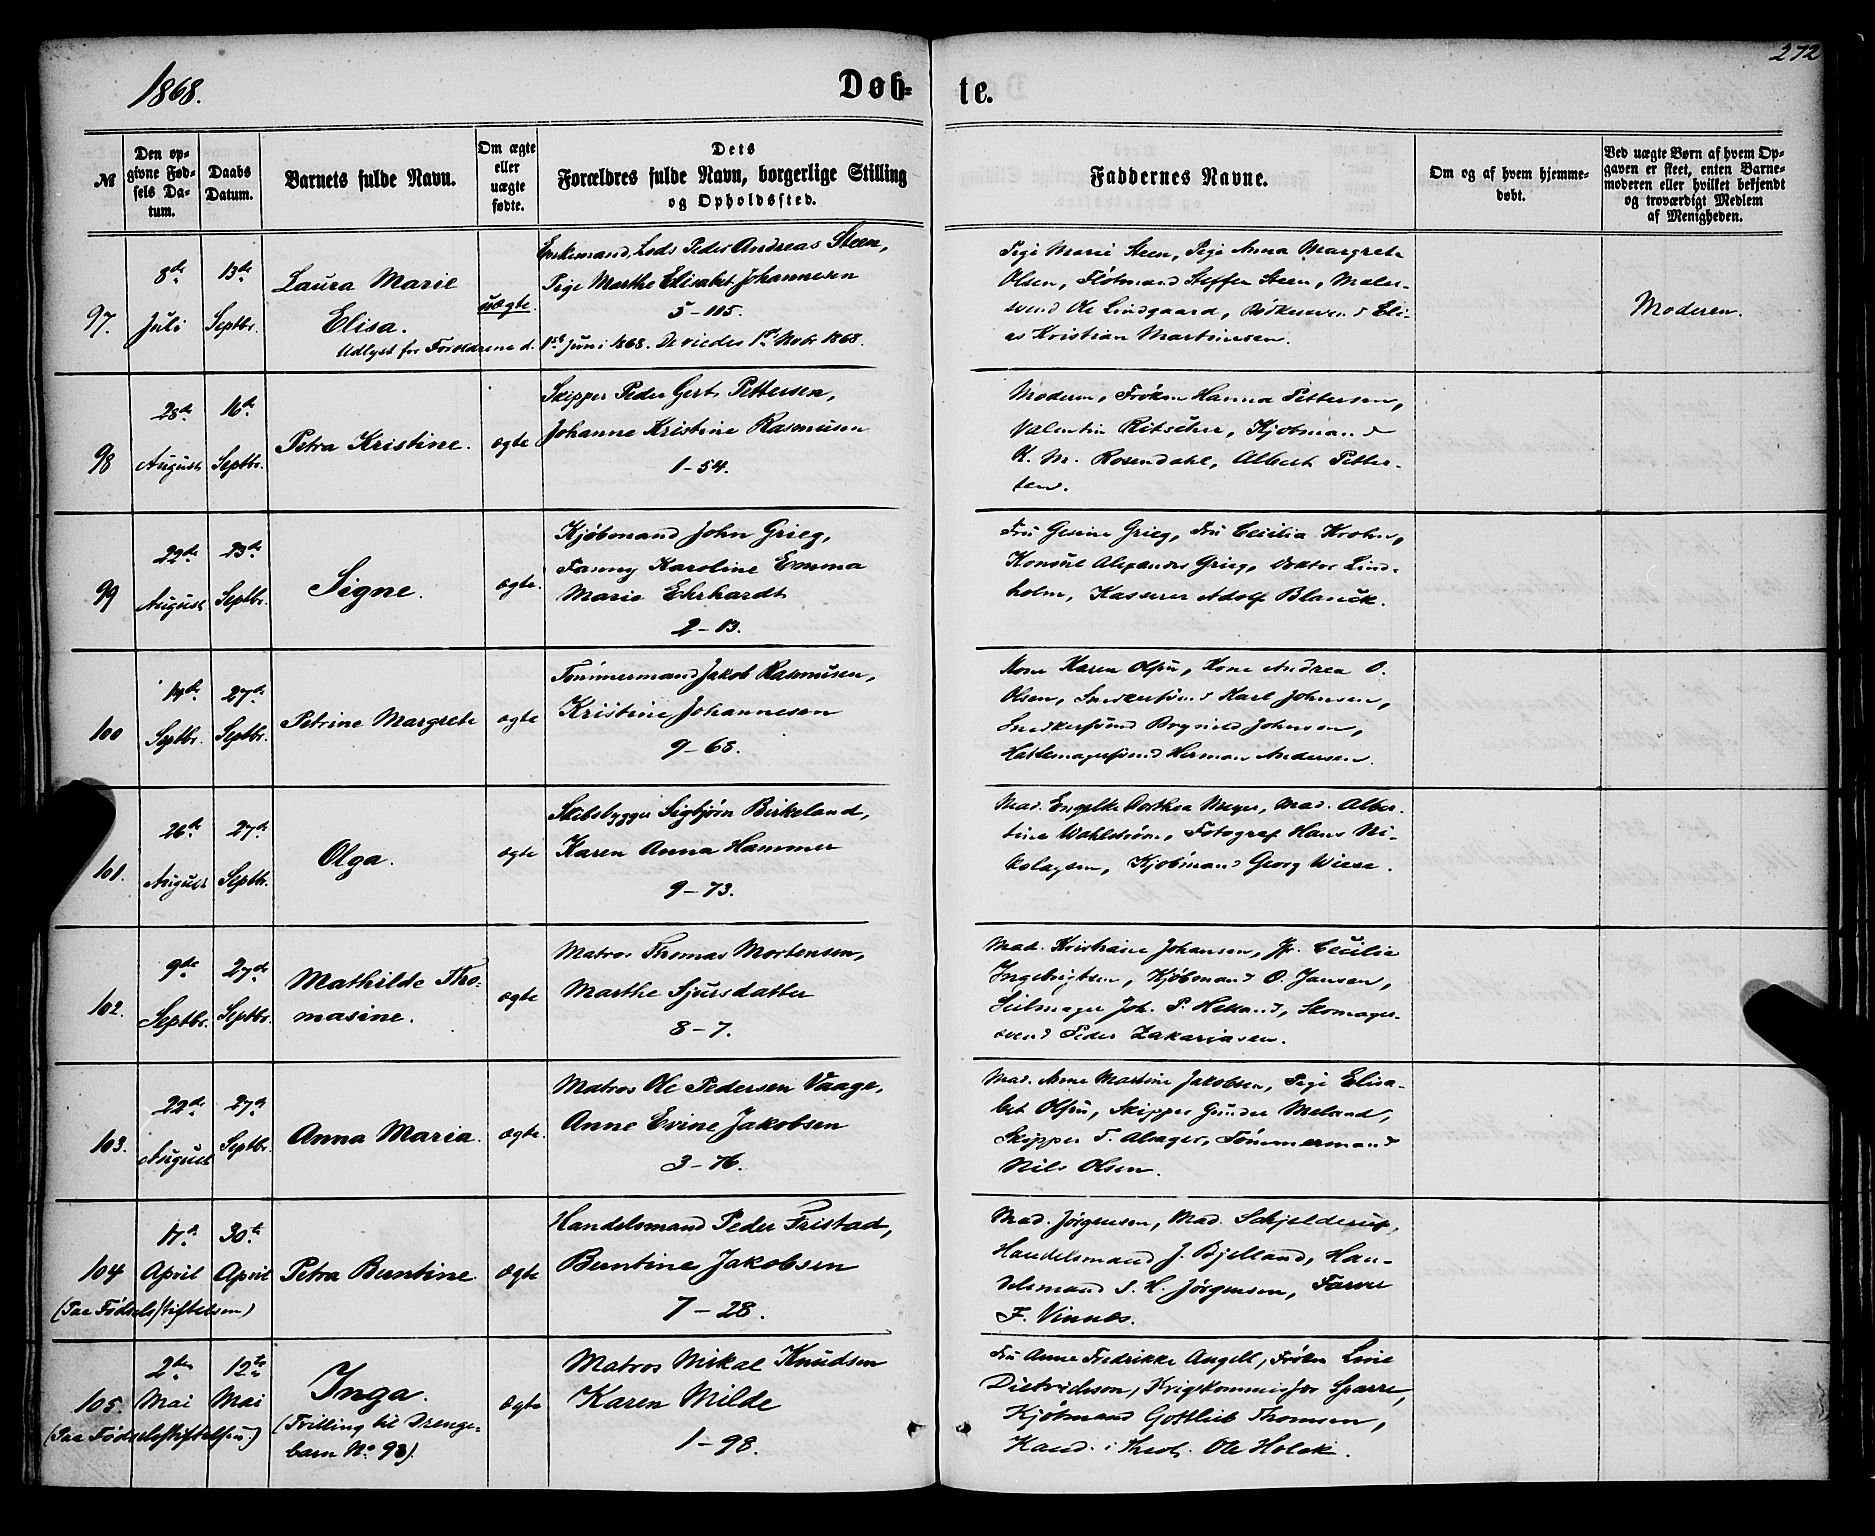 272
1868.
Døb-
te.
№
Den op-
givne Fød-
sels Da-
tum.
Daabs
Datum.
Barnets fulde Navn.
Om ægte
eller
uægte
fødte.
Dets
Forældres fulde Navn, borgerlige Stilling
og Opholdssted.
Faddernes Navne.
Om og af hvem hjemme-
døbt.
Ved uægte Børn af hvem Op-
gaven er skeet, enten Barne-
moderen eller hvilket bekjendt
og troværdigt Medlem
af Menigheden.
97.
8de
Juli
13de
Septbr.
Laura Marie
Elisa.
uægte.
Enkemand, Lods Peder Andreas Steen,
Pige Marthe Elisabet Johannesen
5-105.
Udlyst for Forældrene d. 1ste Juni 1868. De viedes 1ste Nobr 1868.
Pige Marie Steen, Pige Anna Margrete
Olsen, Fløtmand Steffen Steen, Maler-
svend Ole Lindgaard, Bødkersvend Eli-
as Kristian Martinesen.
Moderen.
98
28de
August
16de
Septbr.
Petra Kristine.
ægte
Skipper Peder Gerts Pettersen,
Johanne Kristine Rasmusen
1-54.
Moderen, Frøken Hanna Pettersen,
Valentin Ritscher, Kjøbmand
K. M. Rosendahl, Albert Petter-
sen.
99
22de
August
23de
Septbr.
Signe.
ægte.
Kjøbmand John Grieg,
Fanny Karoline Emma
Marie Ehrhardt
2-13.
Fru Gesine Grieg, Fru Cecilia Krohn,
Konsul Alexander Grieg, Doktor Lind-
holm, Kasserer Adolf Blanck.
100
14de
Septbr.
27de
Septbr.
Petrine Margrete
ægte
Tømmermand Jakob Rasmusen,
Kristine Johannesen
9-68.
Kone Karen Olsen, Kone Andrea O.
Olsen, Snedkersvend Karl Johnsen,
Snedkersvend Brynild Johnsen,
Hattemagersvend Herman Andersen.
101.
26de
August
27de
Septbr.
Olga.
ægte
Skibsbygger Sigbjørn Birkeland,
Karen Anna Hammer
9-73.
Mad. Engelke Dorthea Meyer, Mad. Alber-
tine Wahlstrøm, Fotograf Hans Ni-
kolaysen, Kjøbmand Georg Wiese.
102.
9de
Septbr.
27de
Septbr.
Mathilde Tho-
masine.
ægte
Matros Thomas Mortensen,
Marthe Sjursdatter
8-7.
Mad. Kristiane Johansen, Jfr. Cecilie
Ingebrigtsen, Kjøbmand O. Jansen,
Seilmager Joh. P. Hekand, Skomager-
svend Peder Zakariasen.
103.
22de
August
27de
Septbr.
Anna Maria.
ægte.
Matros Ole Pedersen Vaage,
Anne Evine Jakobsen
3-76.
Mad. Anne Martine Jakobsen, Pige Elisa-
bet Olsen, Skipper Gunder Meland,
Skipper T. Alsager, Tømmermand
Nils Olsen.
104
17de
April
30te
April
Petra Berntine
ægte
Handelsmand Peder Fristad,
Berntine Jakobsen
7-28.
(Paa Fødselsstiftelsen)
Mad. Jørgensen, Mad. Schjelderup,
Handelsmand J. Bjelland, Han-
delsmand S. H. Jørgensen, Farver
F. Vinnes.
105.
2den
Mai
12te
Mai
Inga.
(Tvilling til Drenge-
barn No 98).
ægte
Matros Mikal Knudsen
Karen Milde
1-98.
(Paa Fødselsstiftelsen)
Fru Anne Fredrikke Angell, Frøken Line
Dietrichson, Krigskommissær Sparre,
Kjøbmand Gottlieb Thomsen,
Kand. i Theol. Ole Holck.